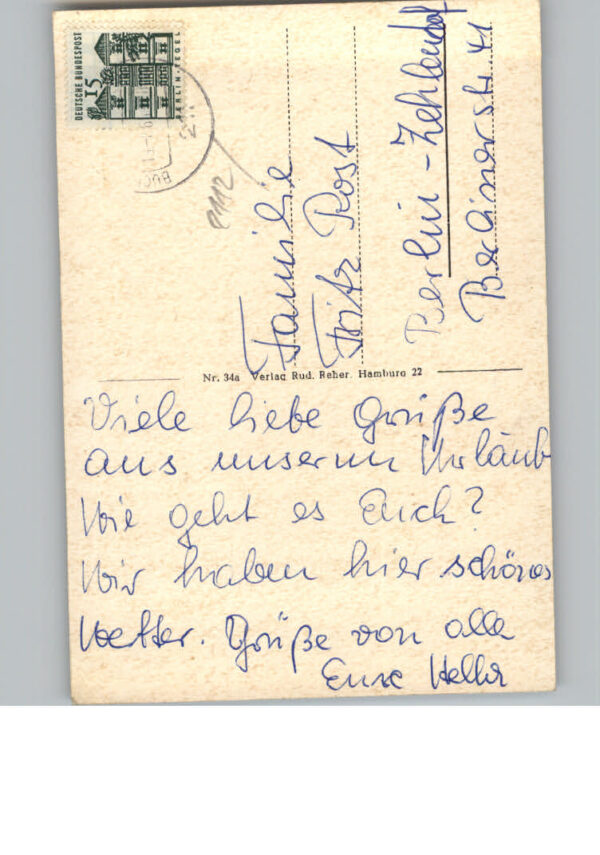 DEUTSCHE BUNDESPOST
15
BERLIN-TEGEL
Familie
Fritz Rost
Berlin-Zehlendorf
Berlinerstr. 41
Nr. 34a Verlag Rud. Reher. Hamburg 22
Viele liebe Grüße
aus unserem Urlaub
Wie geht es Euch?
Wir haben hier schönes
Wetter. Grüße von alle
Eure